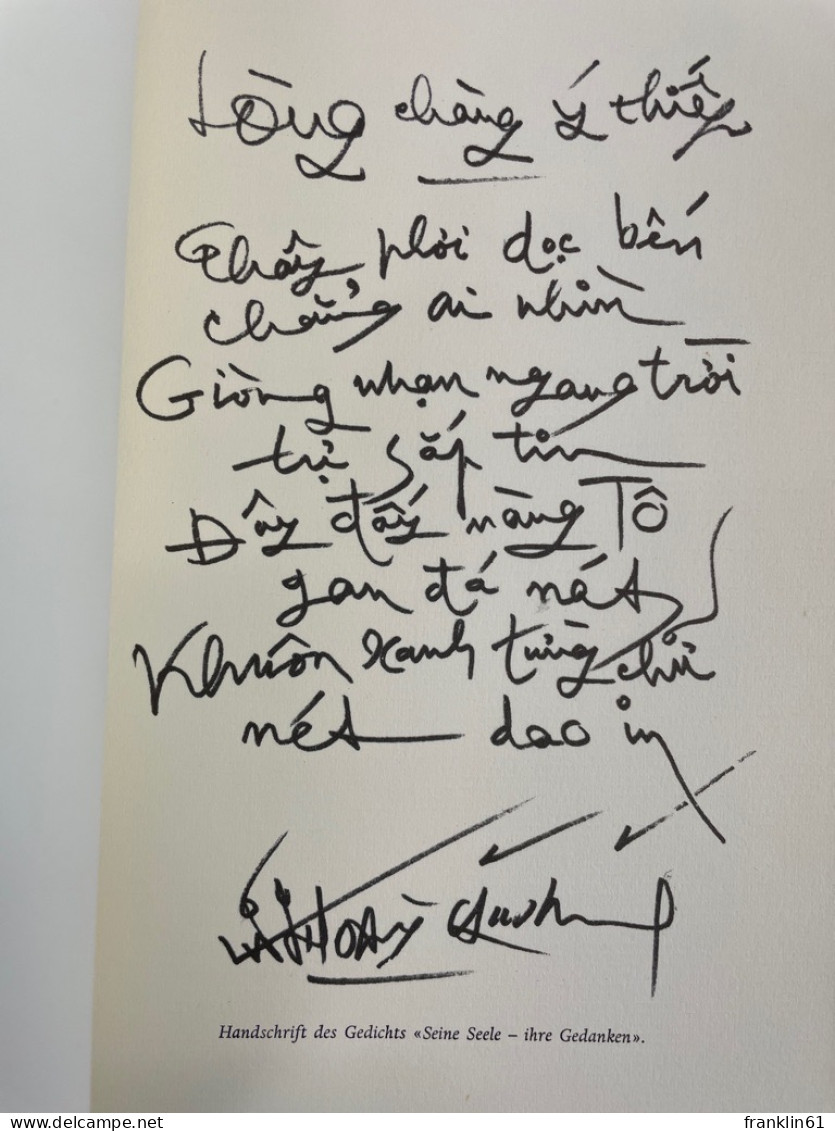 Lòng chàng ý thiếp
Thây phơi dọc bến
chẳng ai nhìn
Giòng nhạn ngang trời
trị sắp tin
Đây đấy nàng Tô
gan đá nát
Khuôn xanh từng chữ
nét dao in
Handschrift des Gedichts «Seine Seele – ihre Gedanken».
delcampe.net
franklin61